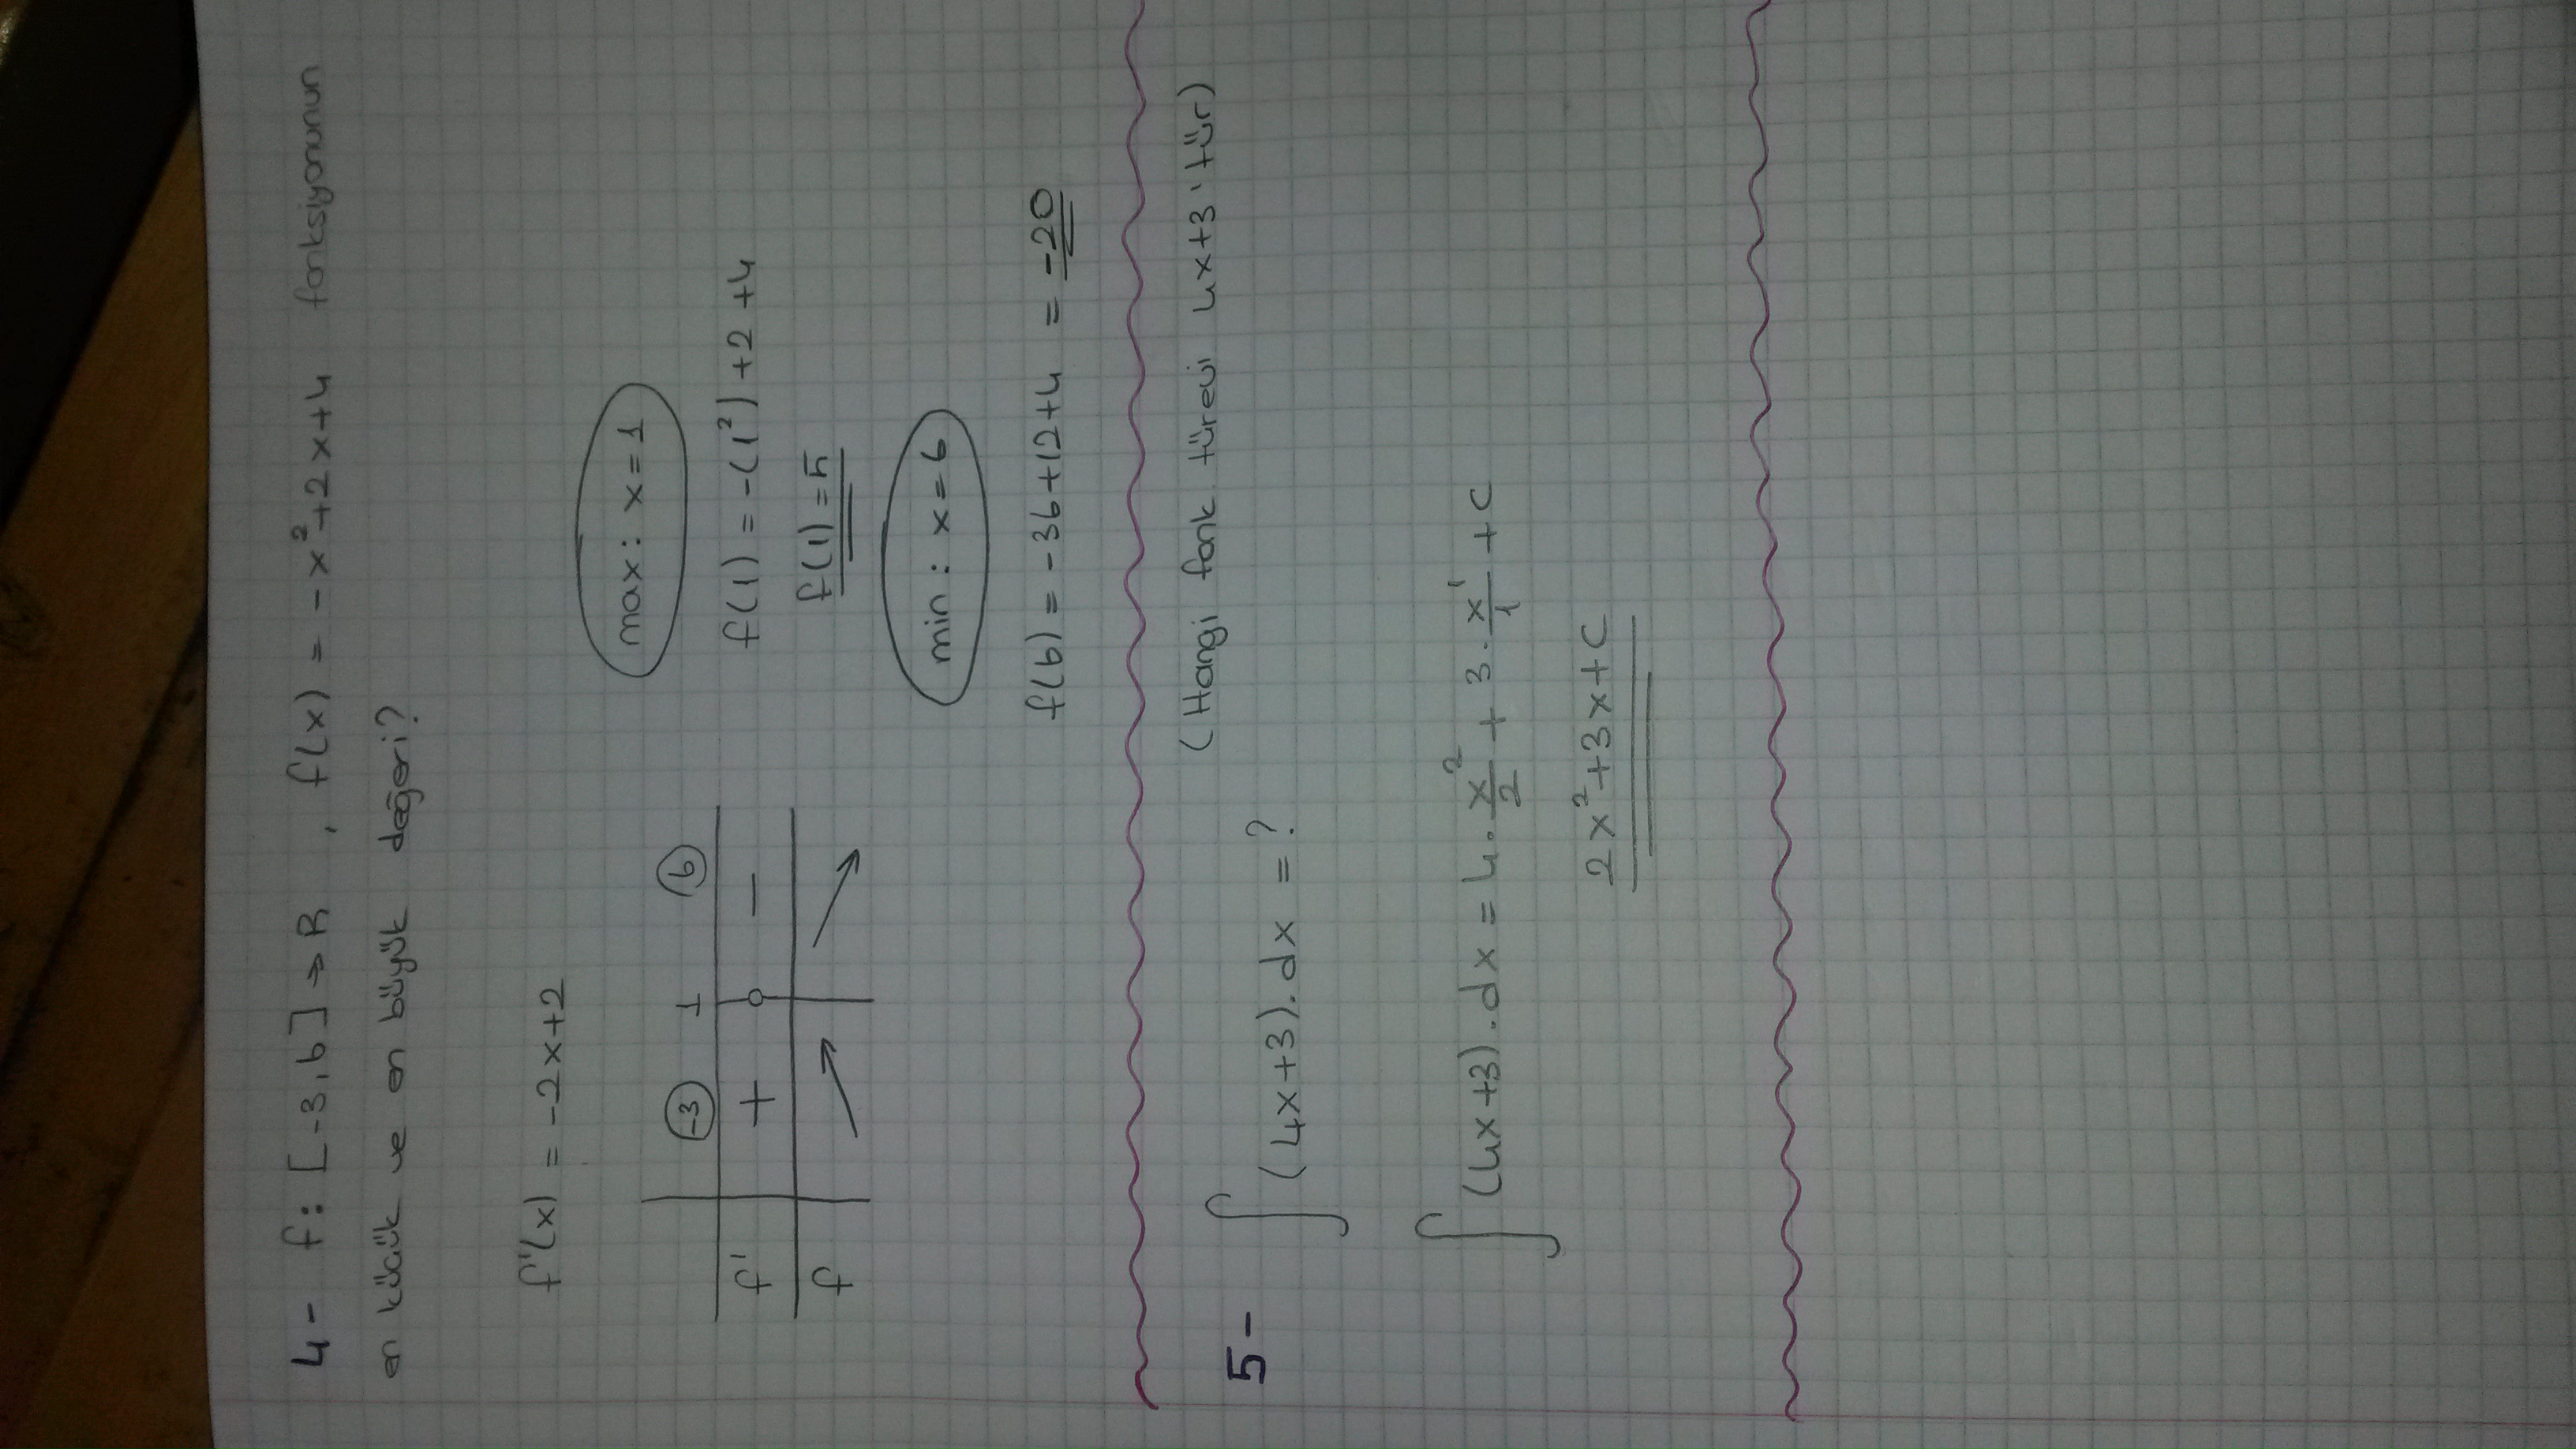 4- f: [-3,6] → R , f(x) = -x²+2x+4 fonksiyonunun
en küçük ve en büyük değeri?
f'(x) = -2x+2
-3 1 6
f' + o -
f
max: x=1
f(1) = -(1²) +2 +4
f(1) = 5
min: x=6
f(6) = -36+12+4 = -20
(Hangi fonk türevi 4x+3'tür)
5- ∫(4x+3).dx = ?
∫(4x+3).dx = 4.x²/2 + 3.x¹/1 + C
2x²+3x+C